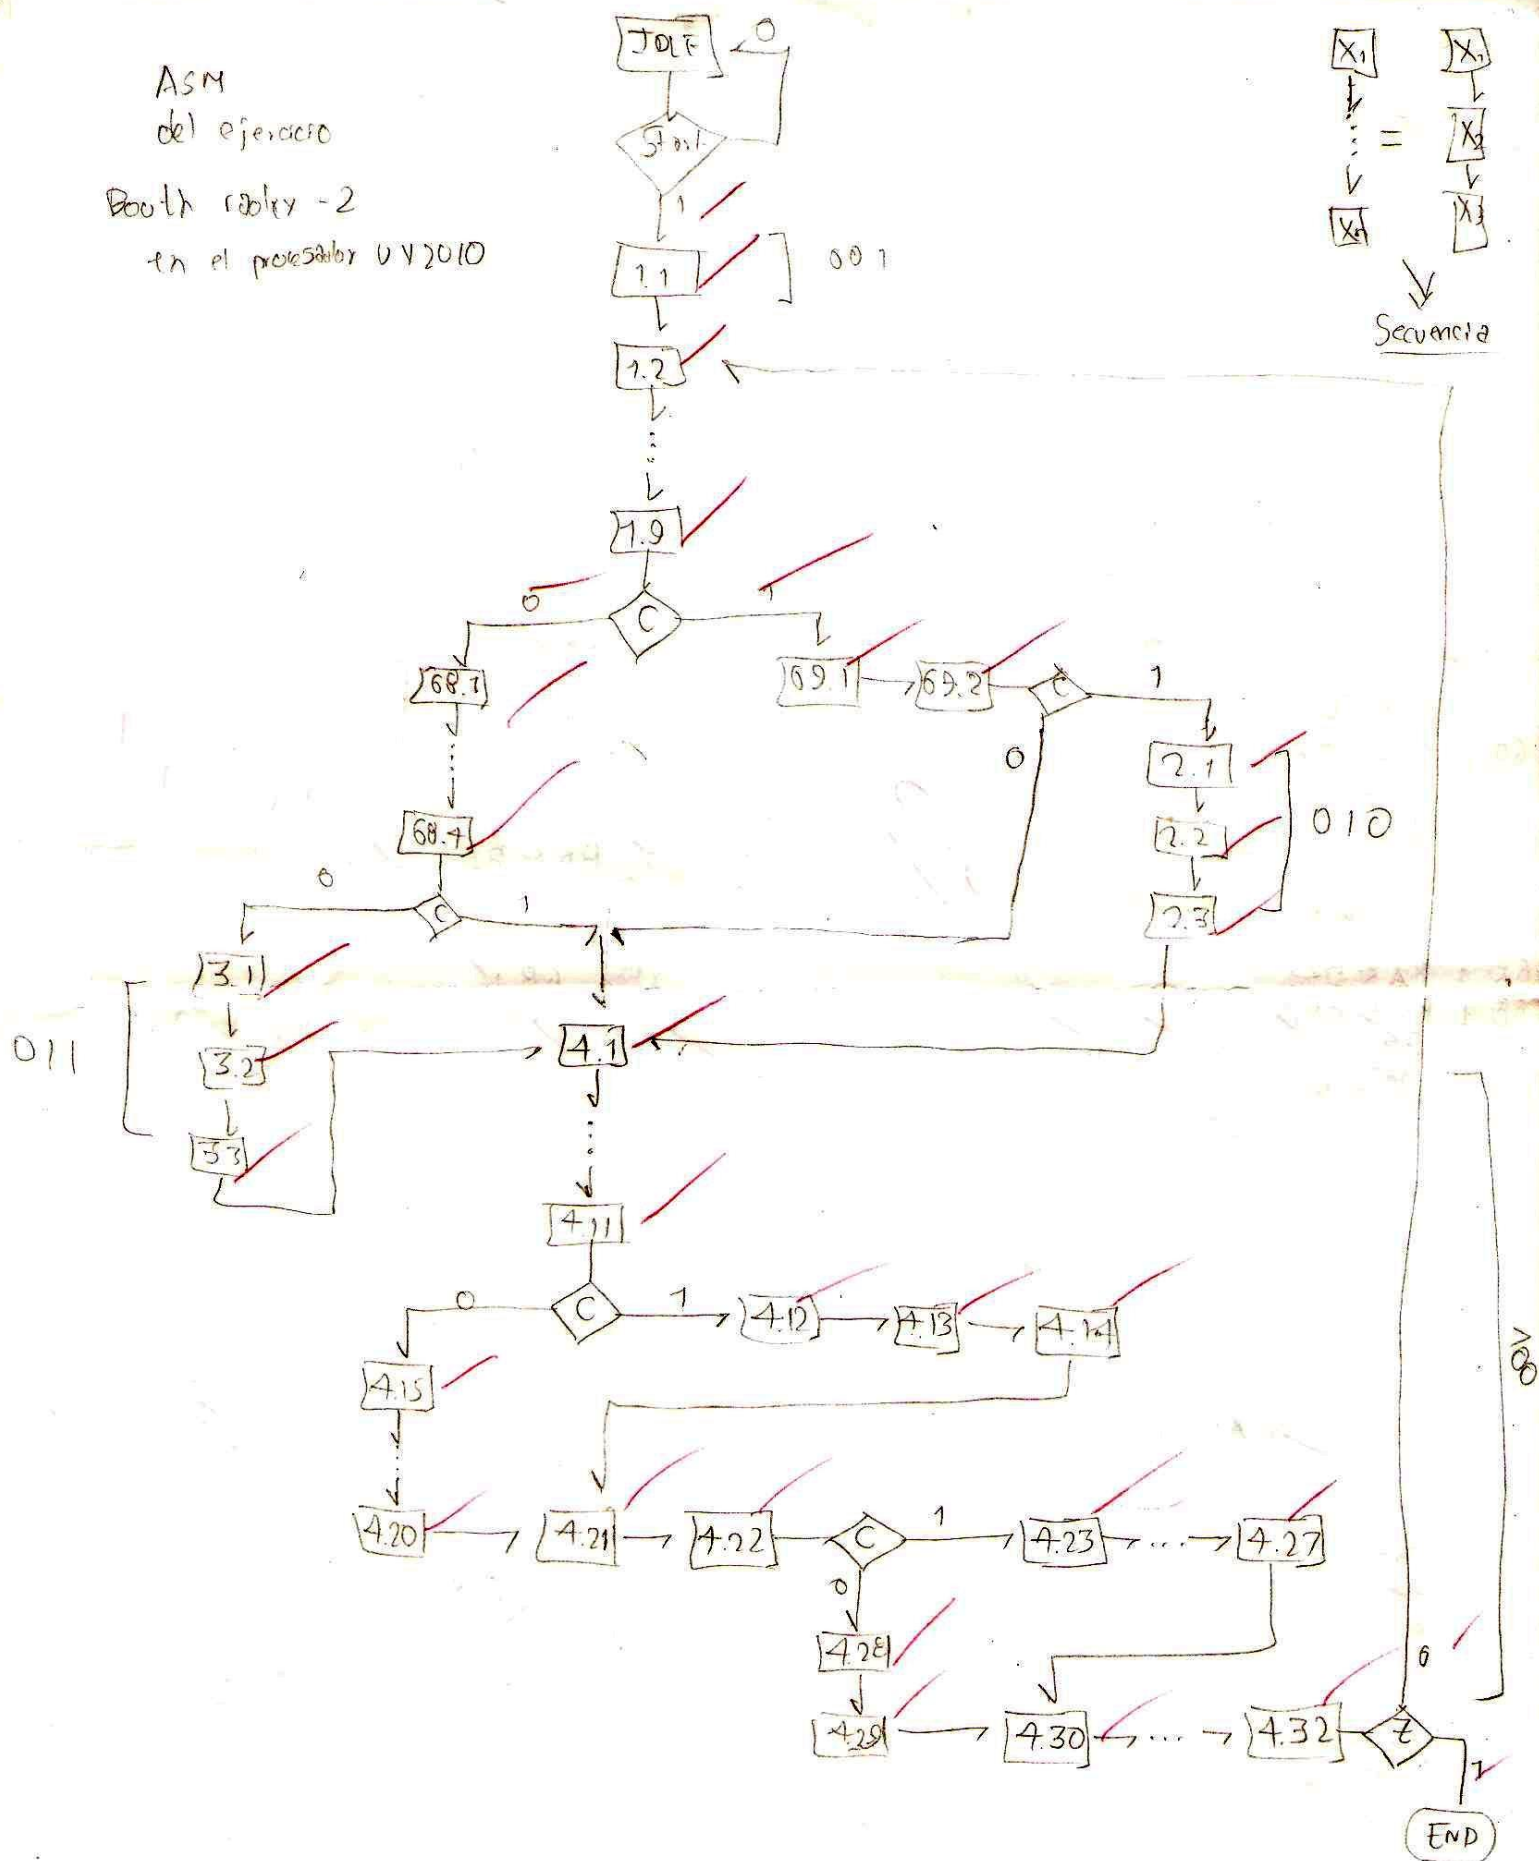 ASM
del ejercicio
Booth radix -2
en el procesador UV2010
IDLE
0
Start
1
1.1
001
1.2
1.9
C
0
1
68.1
69.1
69.2
C
1
0
2.1
2.2
2.3
010
68.4
C
0
1
3.1
3.2
3.3
011
4.1
4.11
C
0
1
4.12
4.13
4.14
4.15
4.20
4.21
4.22
C
1
0
4.23
...
4.27
4.28
4.29
4.30
...
4.32
Z
0
1
END
X1
Xn
=
X1
X2
X3
Secuencia